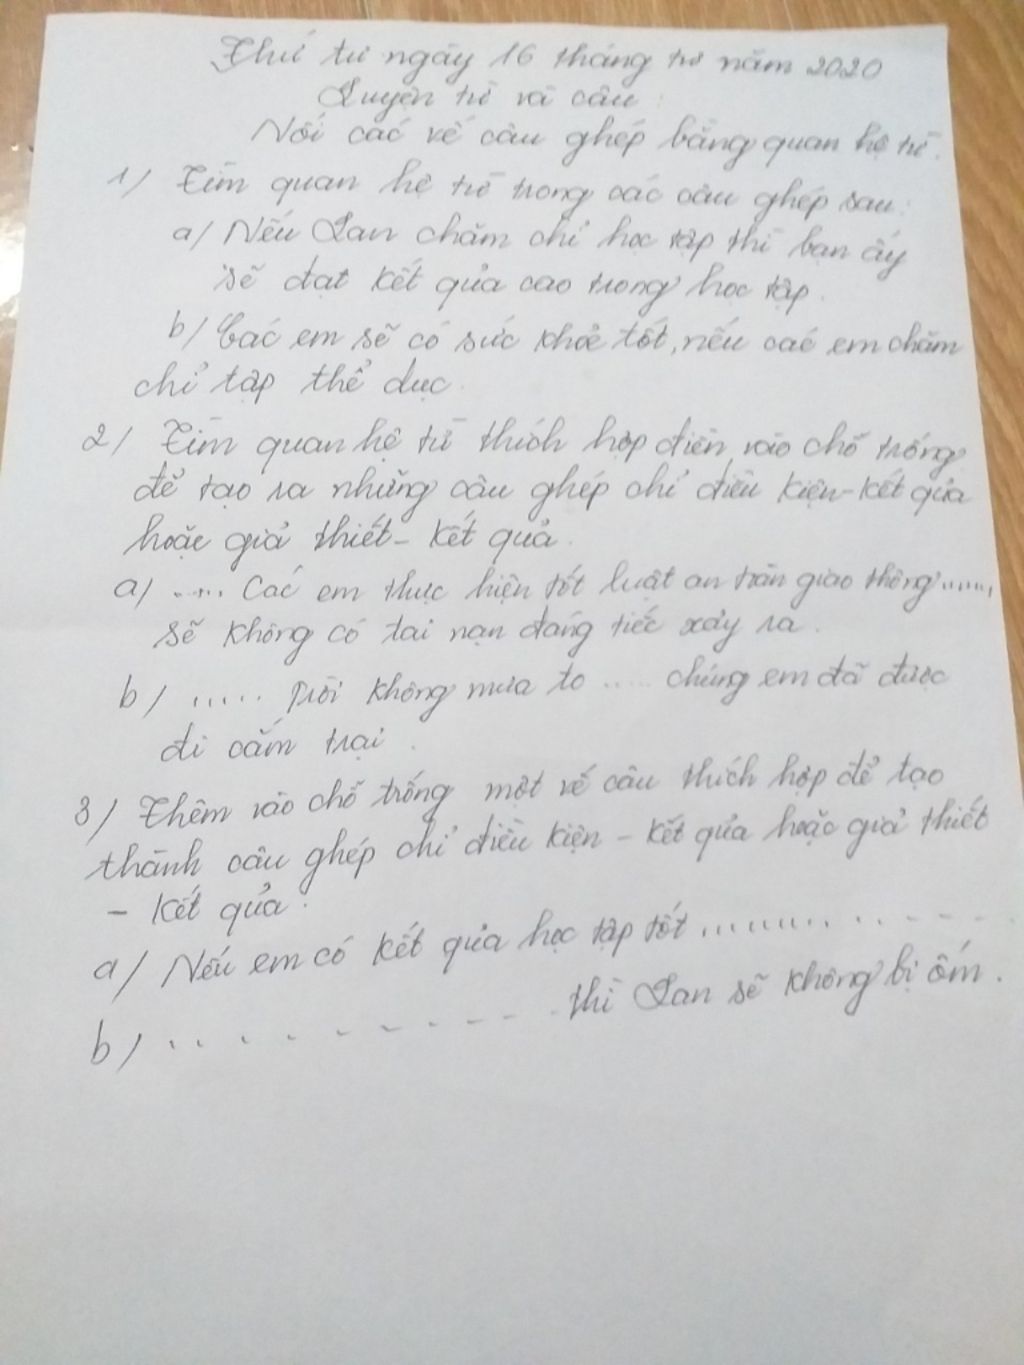 Thứ tư ngày 16 tháng tư năm 2020
Luyện từ và câu
Nối các vế câu ghép bằng quan hệ từ.
1/ Tìm quan hệ từ trong các câu ghép sau:
a/ Nếu Lan chăm chỉ học tập thì bạn ấy
sẽ đạt kết quả cao trong học tập.
b/ Các em sẽ có sức khỏe tốt, nếu các em chăm
chỉ tập thể dục.
2/ Tìm quan hệ từ thích hợp điền vào chỗ trống
để tạo ra những câu ghép chỉ điều kiện - kết quả
hoặc giả thiết - kết quả.
a/ ..... Các em thực hiện tốt luật an toàn giao thông ......
sẽ không có tai nạn đáng tiếc xảy ra.
b/ ...... Trời không mưa to ..... chúng em đã được
đi cắm trại.
3/ Thêm vào chỗ trống một vế câu thích hợp để tạo
thành câu ghép chỉ điều kiện - kết quả hoặc giả thiết
- kết quả:
a/ Nếu em có kết quả học tập tốt ...............
b/ ........... thì Lan sẽ không bị ốm.